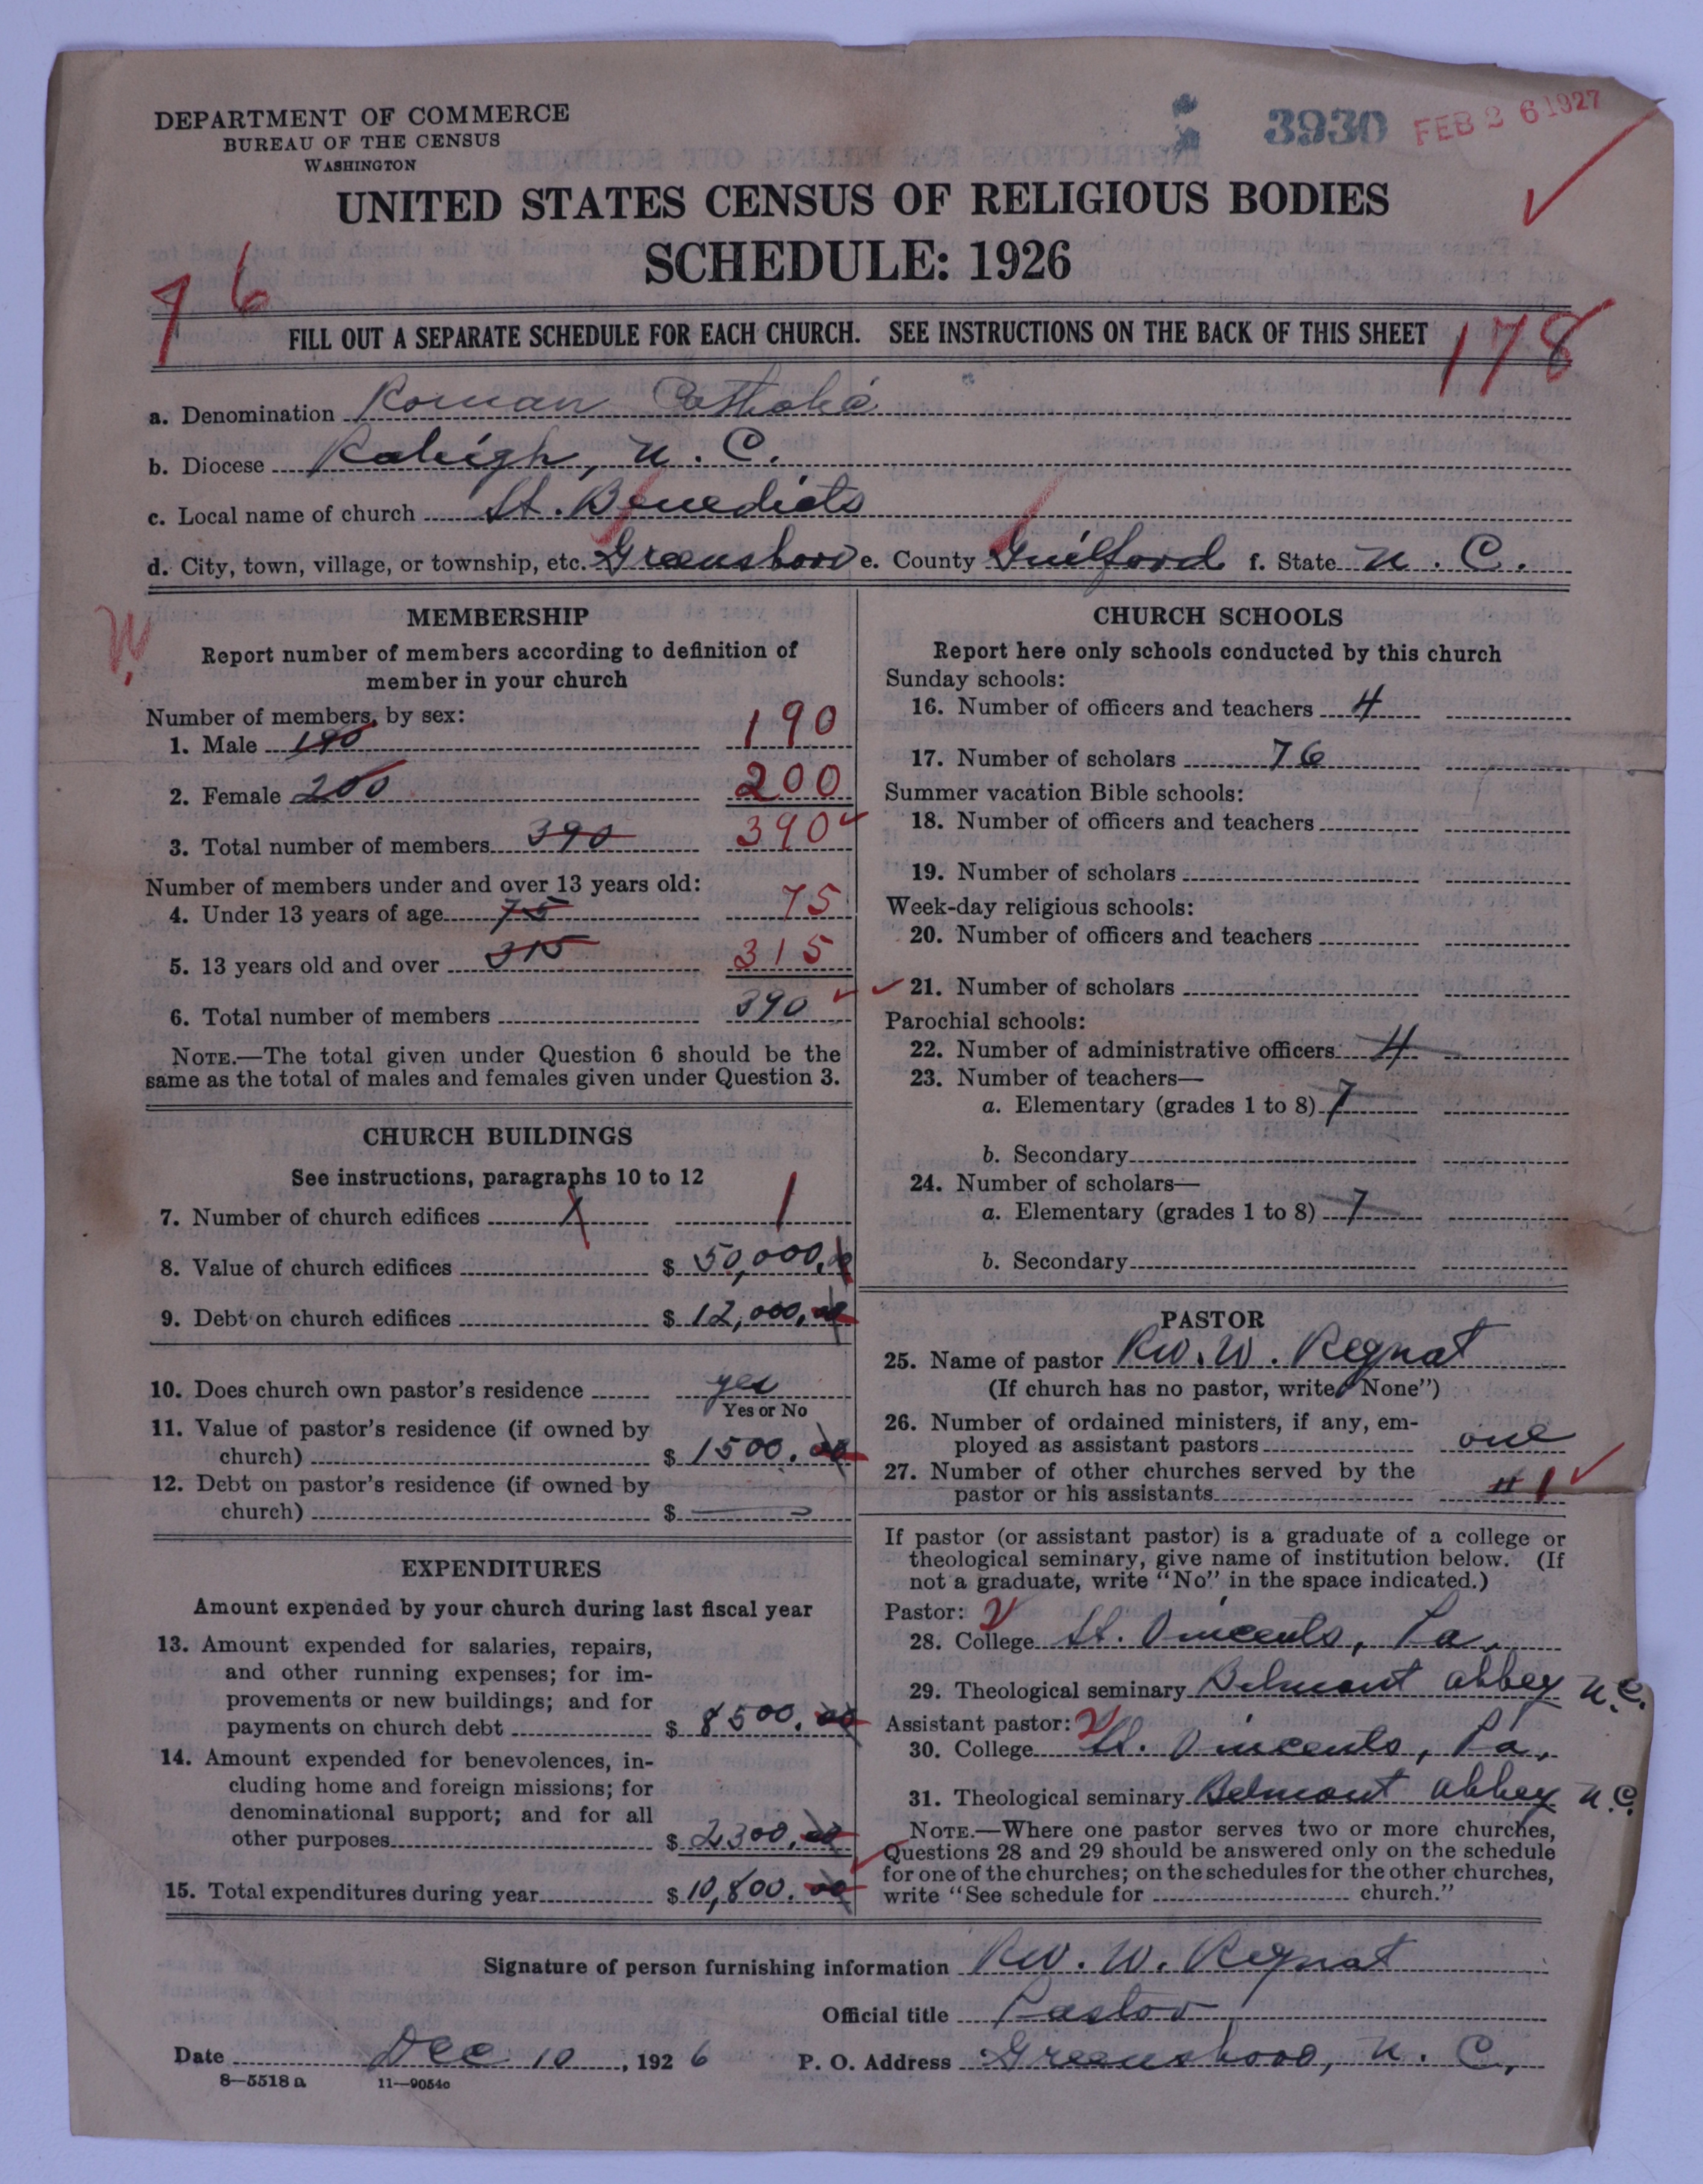 DEPARTMENT OF COMMERCE
BUREAU OF THE CENSUS
WASHINGTON
3930 FEB 26 1927
UNITED STATES CENSUS OF RELIGIOUS BODIES
SCHEDULE: 1926
76
FILL OUT A SEPARATE SCHEDULE FOR EACH CHURCH. SEE INSTRUCTIONS ON THE BACK OF THIS SHEET 178
a. Denomination Roman Catholic
b. Diocese Raleigh, N. C.
c. Local name of church St. Benedicts
d. City, town, village, or township, etc. Greensboro e. County Guilford f. State N. C.
W
MEMBERSHIP
Report number of members according to definition of
member in your church
Number of members, by sex:
1. Male 190 190
2. Female 200 200
3. Total number of members 390 390
Number of members under and over 13 years old:
4. Under 13 years of age 75 75
5. 13 years old and over 315 315
6. Total number of members 390
NOTE.—The total given under Question 6 should be the
same as the total of males and females given under Question 3.
CHURCH BUILDINGS
See instructions, paragraphs 10 to 12
7. Number of church edifices 1 1
8. Value of church edifices $ 50,000.00
9. Debt on church edifices $ 12,000.00
10. Does church own pastor's residence yes
Yes or No
11. Value of pastor's residence (if owned by
church) $ 1500.00
12. Debt on pastor's residence (if owned by
church) $
EXPENDITURES
Amount expended by your church during last fiscal year
13. Amount expended for salaries, repairs,
and other running expenses; for im-
provements or new buildings; and for
payments on church debt $ 8500.00
14. Amount expended for benevolences, in-
cluding home and foreign missions; for
denominational support; and for all
other purposes $ 2300.00
15. Total expenditures during year $ 10,800.00
CHURCH SCHOOLS
Report here only schools conducted by this church
Sunday schools:
16. Number of officers and teachers 4
17. Number of scholars 76
Summer vacation Bible schools:
18. Number of officers and teachers
19. Number of scholars
Week-day religious schools:
20. Number of officers and teachers
21. Number of scholars
Parochial schools:
22. Number of administrative officers 4
23. Number of teachers—
a. Elementary (grades 1 to 8) 7
b. Secondary
24. Number of scholars—
a. Elementary (grades 1 to 8) 7
b. Secondary
PASTOR
25. Name of pastor Rev. W. Regnat
(If church has no pastor, write "None")
26. Number of ordained ministers, if any, em-
ployed as assistant pastors one
27. Number of other churches served by the
pastor or his assistants 1
If pastor (or assistant pastor) is a graduate of a college or
theological seminary, give name of institution below. (If
not a graduate, write "No" in the space indicated.)
Pastor: 2
28. College St. Vincents, Pa.
29. Theological seminary Belmont abbey N.C.
Assistant pastor: 2
30. College St. Vincents, Pa.
31. Theological seminary Belmont abbey N.C.
NOTE.—Where one pastor serves two or more churches,
Questions 28 and 29 should be answered only on the schedule
for one of the churches; on the schedules for the other churches,
write "See schedule for church."
Signature of person furnishing information Rev. W. Regnat
Official title Pastor
Date Dec 10, 1926 P. O. Address Greensboro, N. C.
8—5518 a 11—9054c